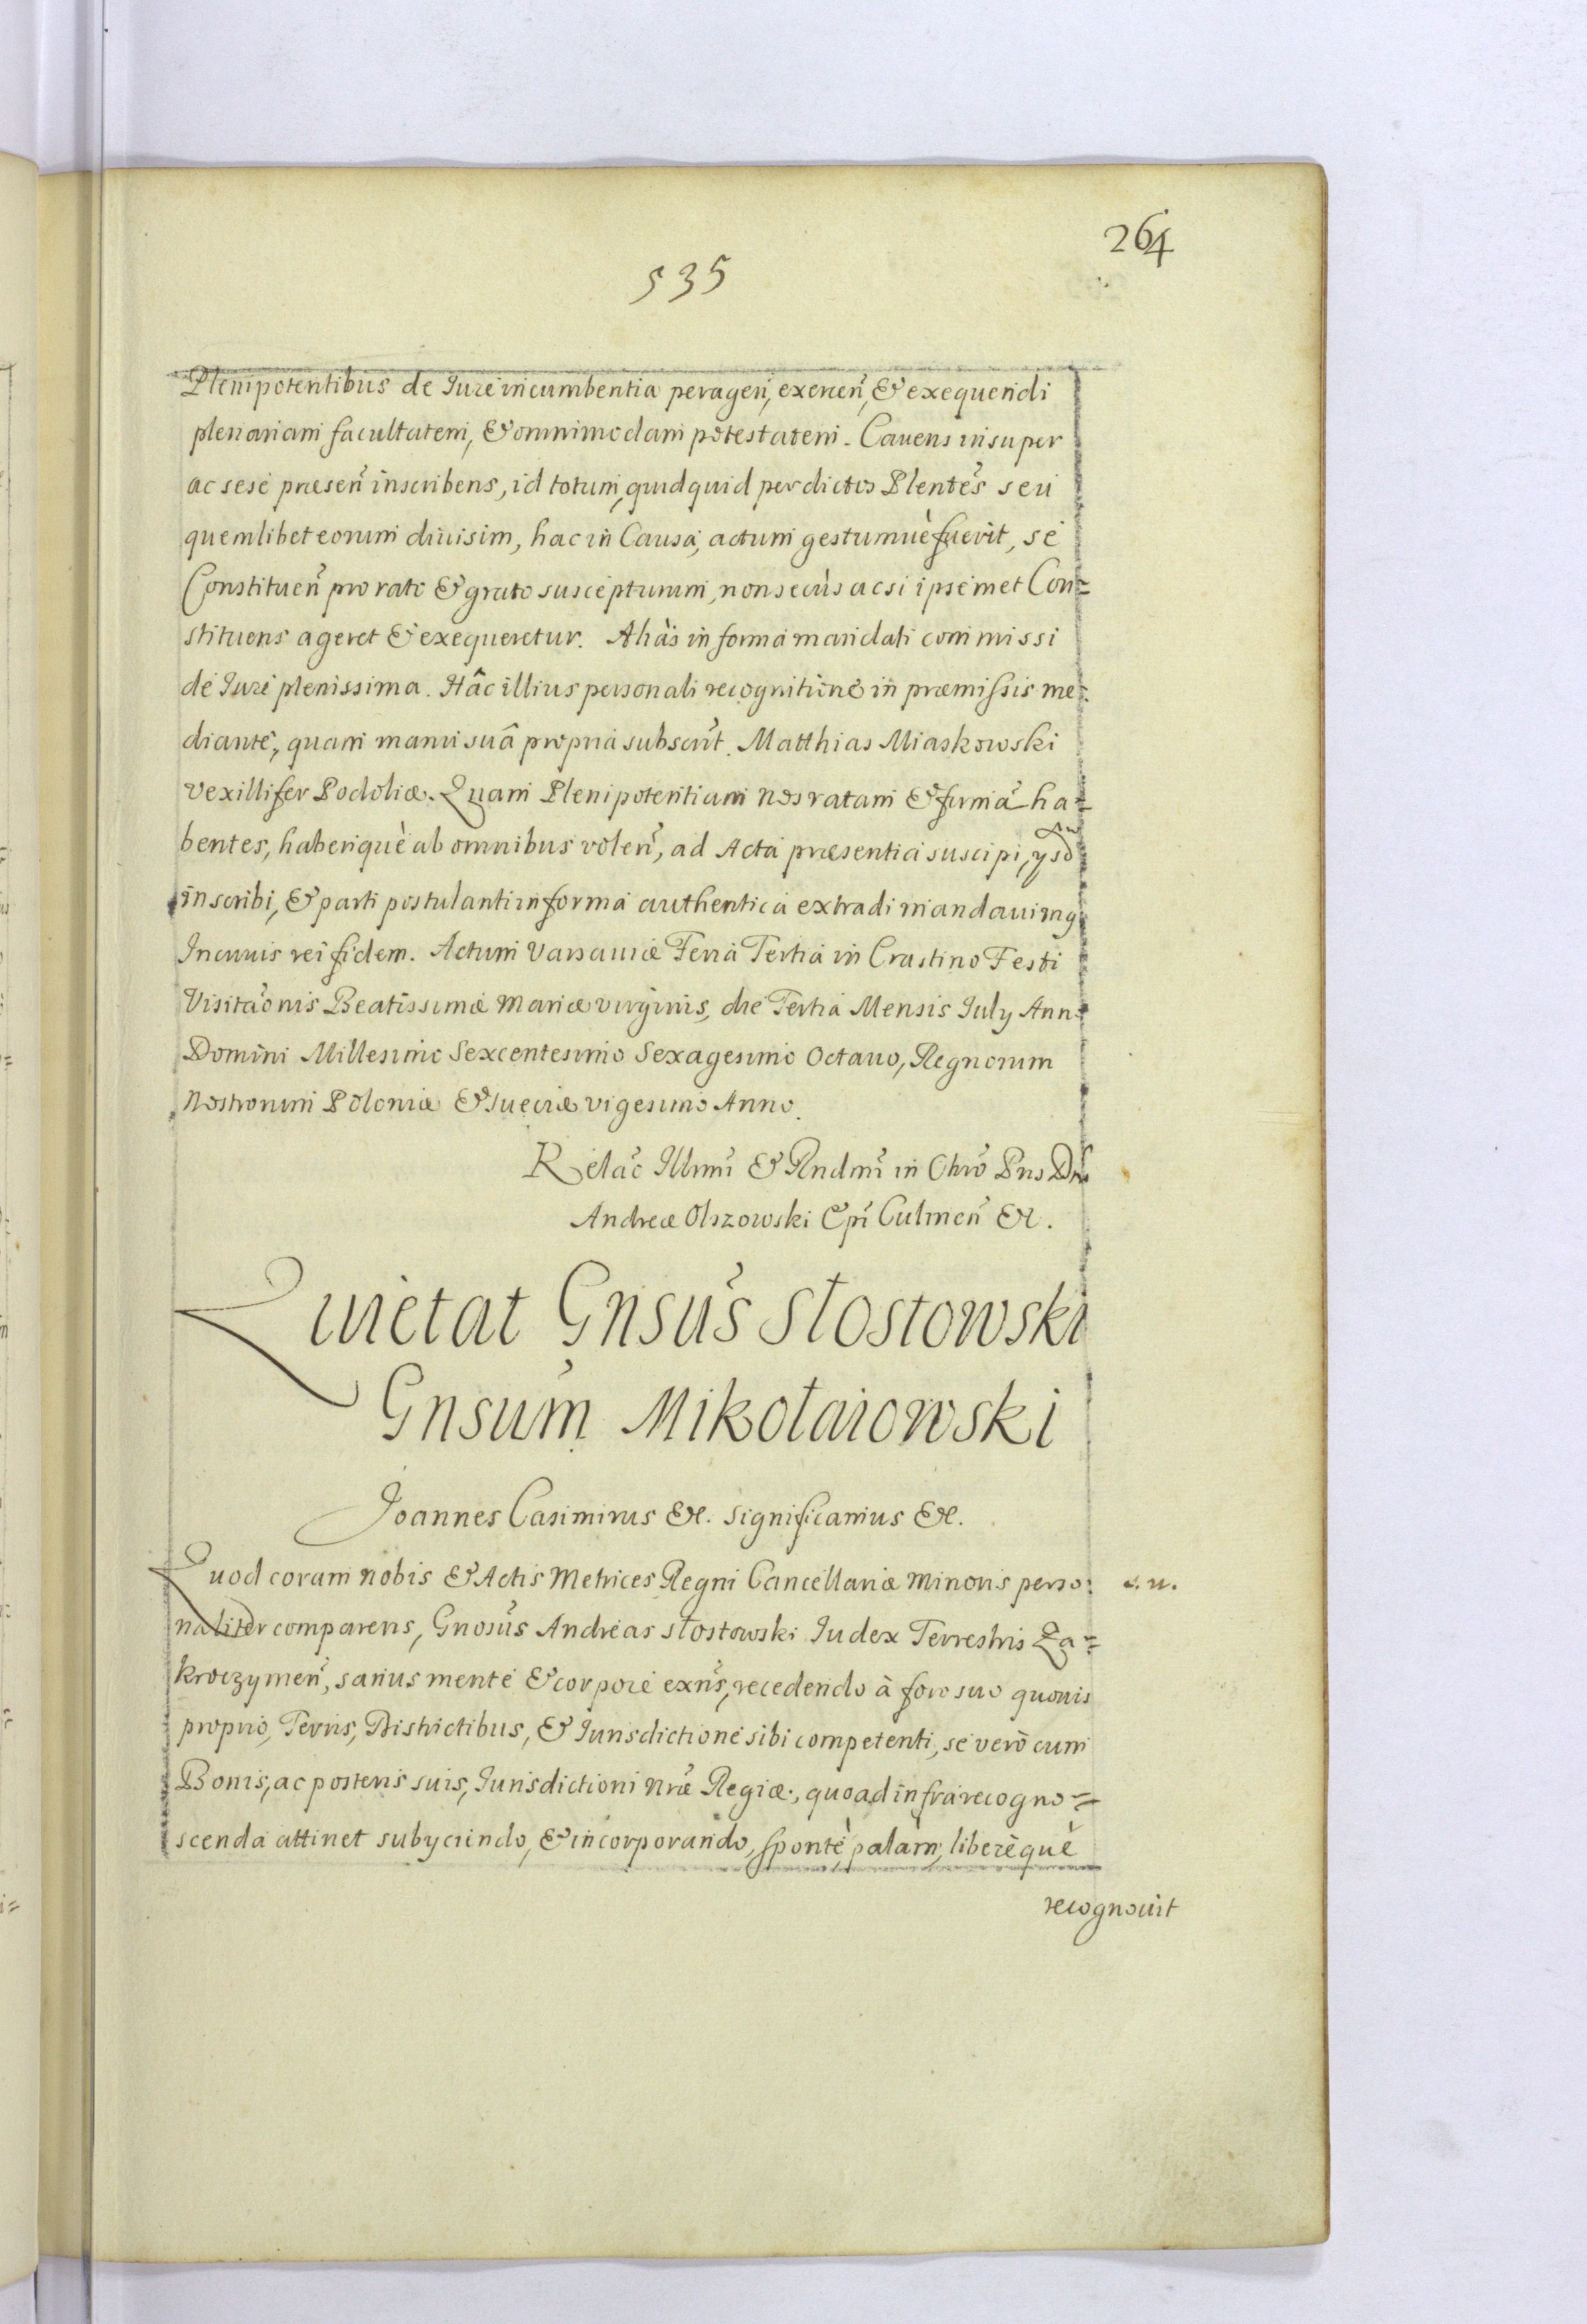 264
535
Plenipotentibus de Iure incumbentia peragen̄, exercen̄, & exequendi
plenariam facultatem, & omnimodam potestatem. Cavens insuper
ac sese praesen̄ inscribens, id totum, quidquid per dictos Plentes̄ seu
quemlibet eorum divisim, hac in Causa, actum gestumuè fuerit, se
Constituen̄ pro rato & grato suscepturum, non secùs ac si ipsemet Con=
stituens ageret & exequeretur. Aliàs in forma mandati commissi
de Iure plenissima. Hâc illius personali recognitione in praemissis me=
diante, quam manu suâ propria subscrīt. Matthias Miaskowski
Vexillifer Podoliae. Quam Plenipotentiam nos ratam & firmā ha=
bentes, haberiquè ab omnibus volen̄, ad Acta praesentia suscipi, ysd̄
inscribi, & parti postulanti in forma authentica extradi mandauimq
In cuius rei fidem. Actum Varsaviae Feria Tertia in Crastino Festi
Visitāonis Beatissimae Mariae virginis, die Tertia Mensis July Ann=
Domini Millesimo Sexcentesimo Sexagesimo Octavo, Regnorum
Nostrorum Poloniae & Sueciae vigesimo Anno.
Relāc Illmī & Rndmī in Chrō Pns Dn̄
Andreae Olszowski Epī Culmen̄ &c.
Quietat Gnsūs Słostowski
Gnsūm Mikołaiowski
Joannes Casimirus &c. significamus &c.
Quod coram nobis & Actis Metrices Regni Cancellariae Minoris perso= s. n.
naliter comparens, Gnosūs Andreas Słostowski Iudex Terrestris Za=
kroczymen̄, sanus mente & corpore exns̄, recedendo à foro suo quovis
proprio, Terris, Districtibus, & Iurisdictione sibi competenti, se verò cum
Bonis, ac posteris suis, Iurisdictioni nrāe Regiae, quoad infra recogno=
scenda attinet subyciendo, & incorporando, sponte, palàm, liberèquè
recognouit